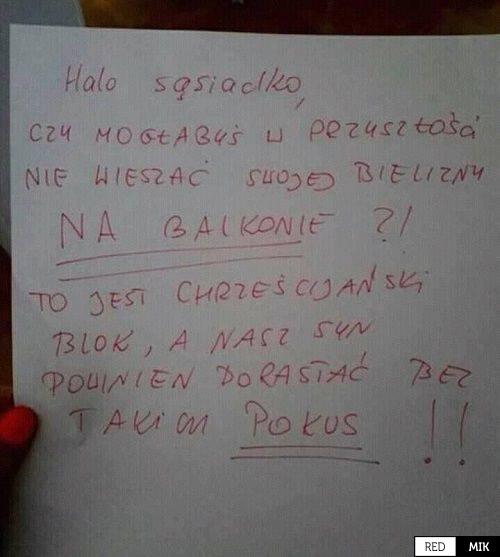 Halo sąsiadko,
CZY MOGŁABYŚ W PRZYSZŁOŚCI
NIE WIESZAĆ SWOJEJ BIELIZNY
NA BALKONIE ?!
TO JEST CHRZEŚCIJAŃSKI
BLOK, A NASZ SYN
POWINIEN DORASTAĆ BEZ
TAKICH POKUS !!
RED MIK